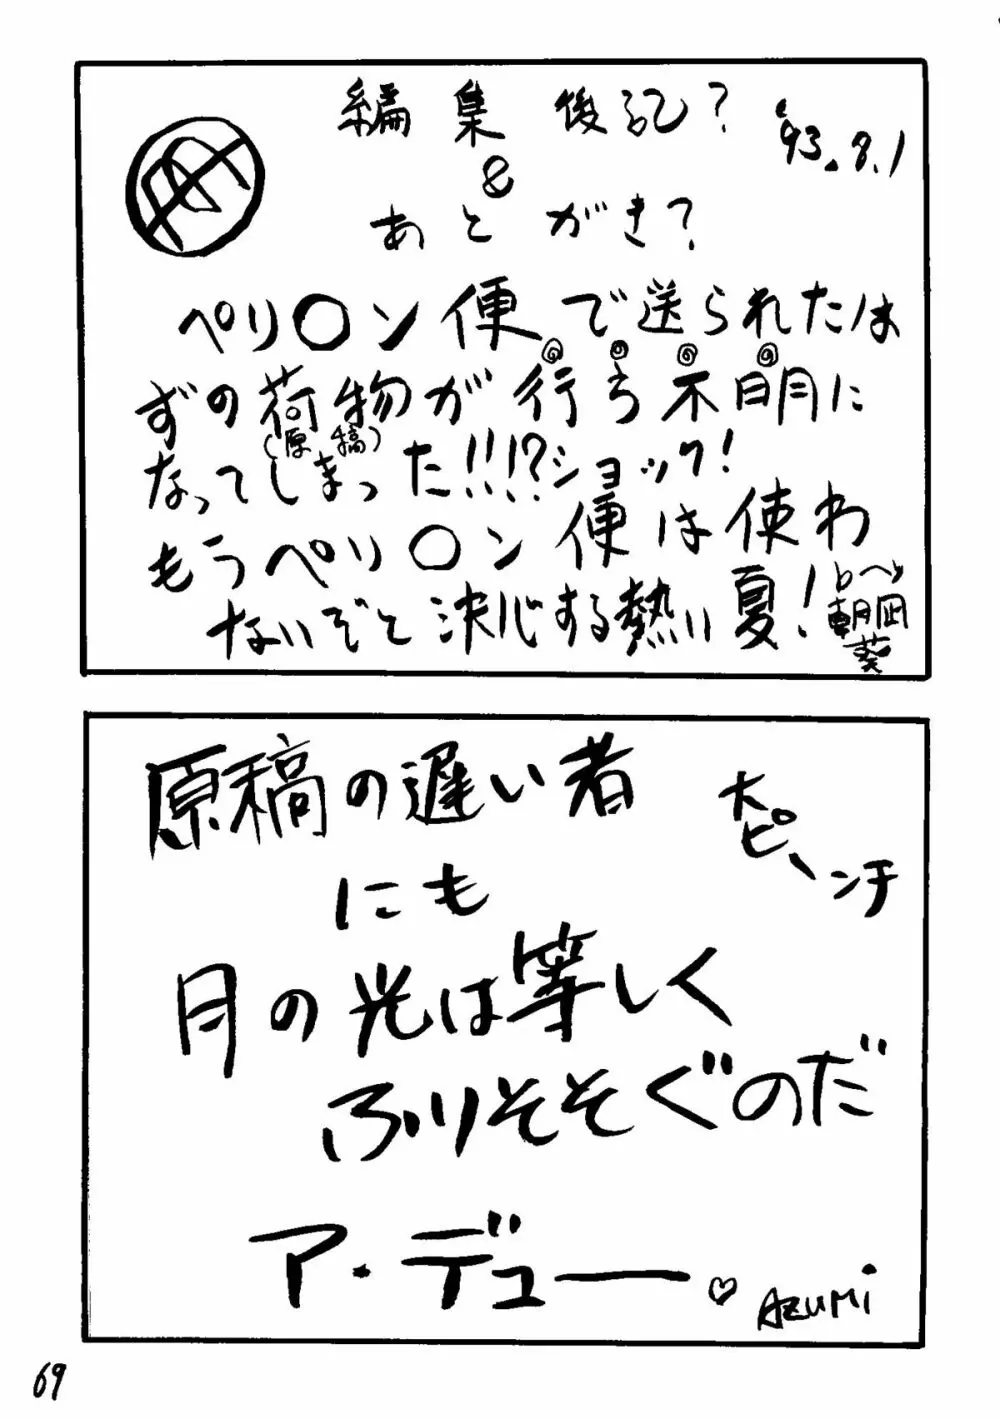 編集後記?
'93.8.1
&
あとがき?
ペリ〇ン便で送られたは
ずの荷物が行方不明に
(原稿)
なってしまった!!!?ショック!
もうペリ〇ン便は使わ
ないぞと決心する熱い夏!
朝凪
葵
原稿の遅い者
大ピーンチ
にも
月の光は等しく
ふりそそぐのだ
ア・デュー♡
AZUMi
69